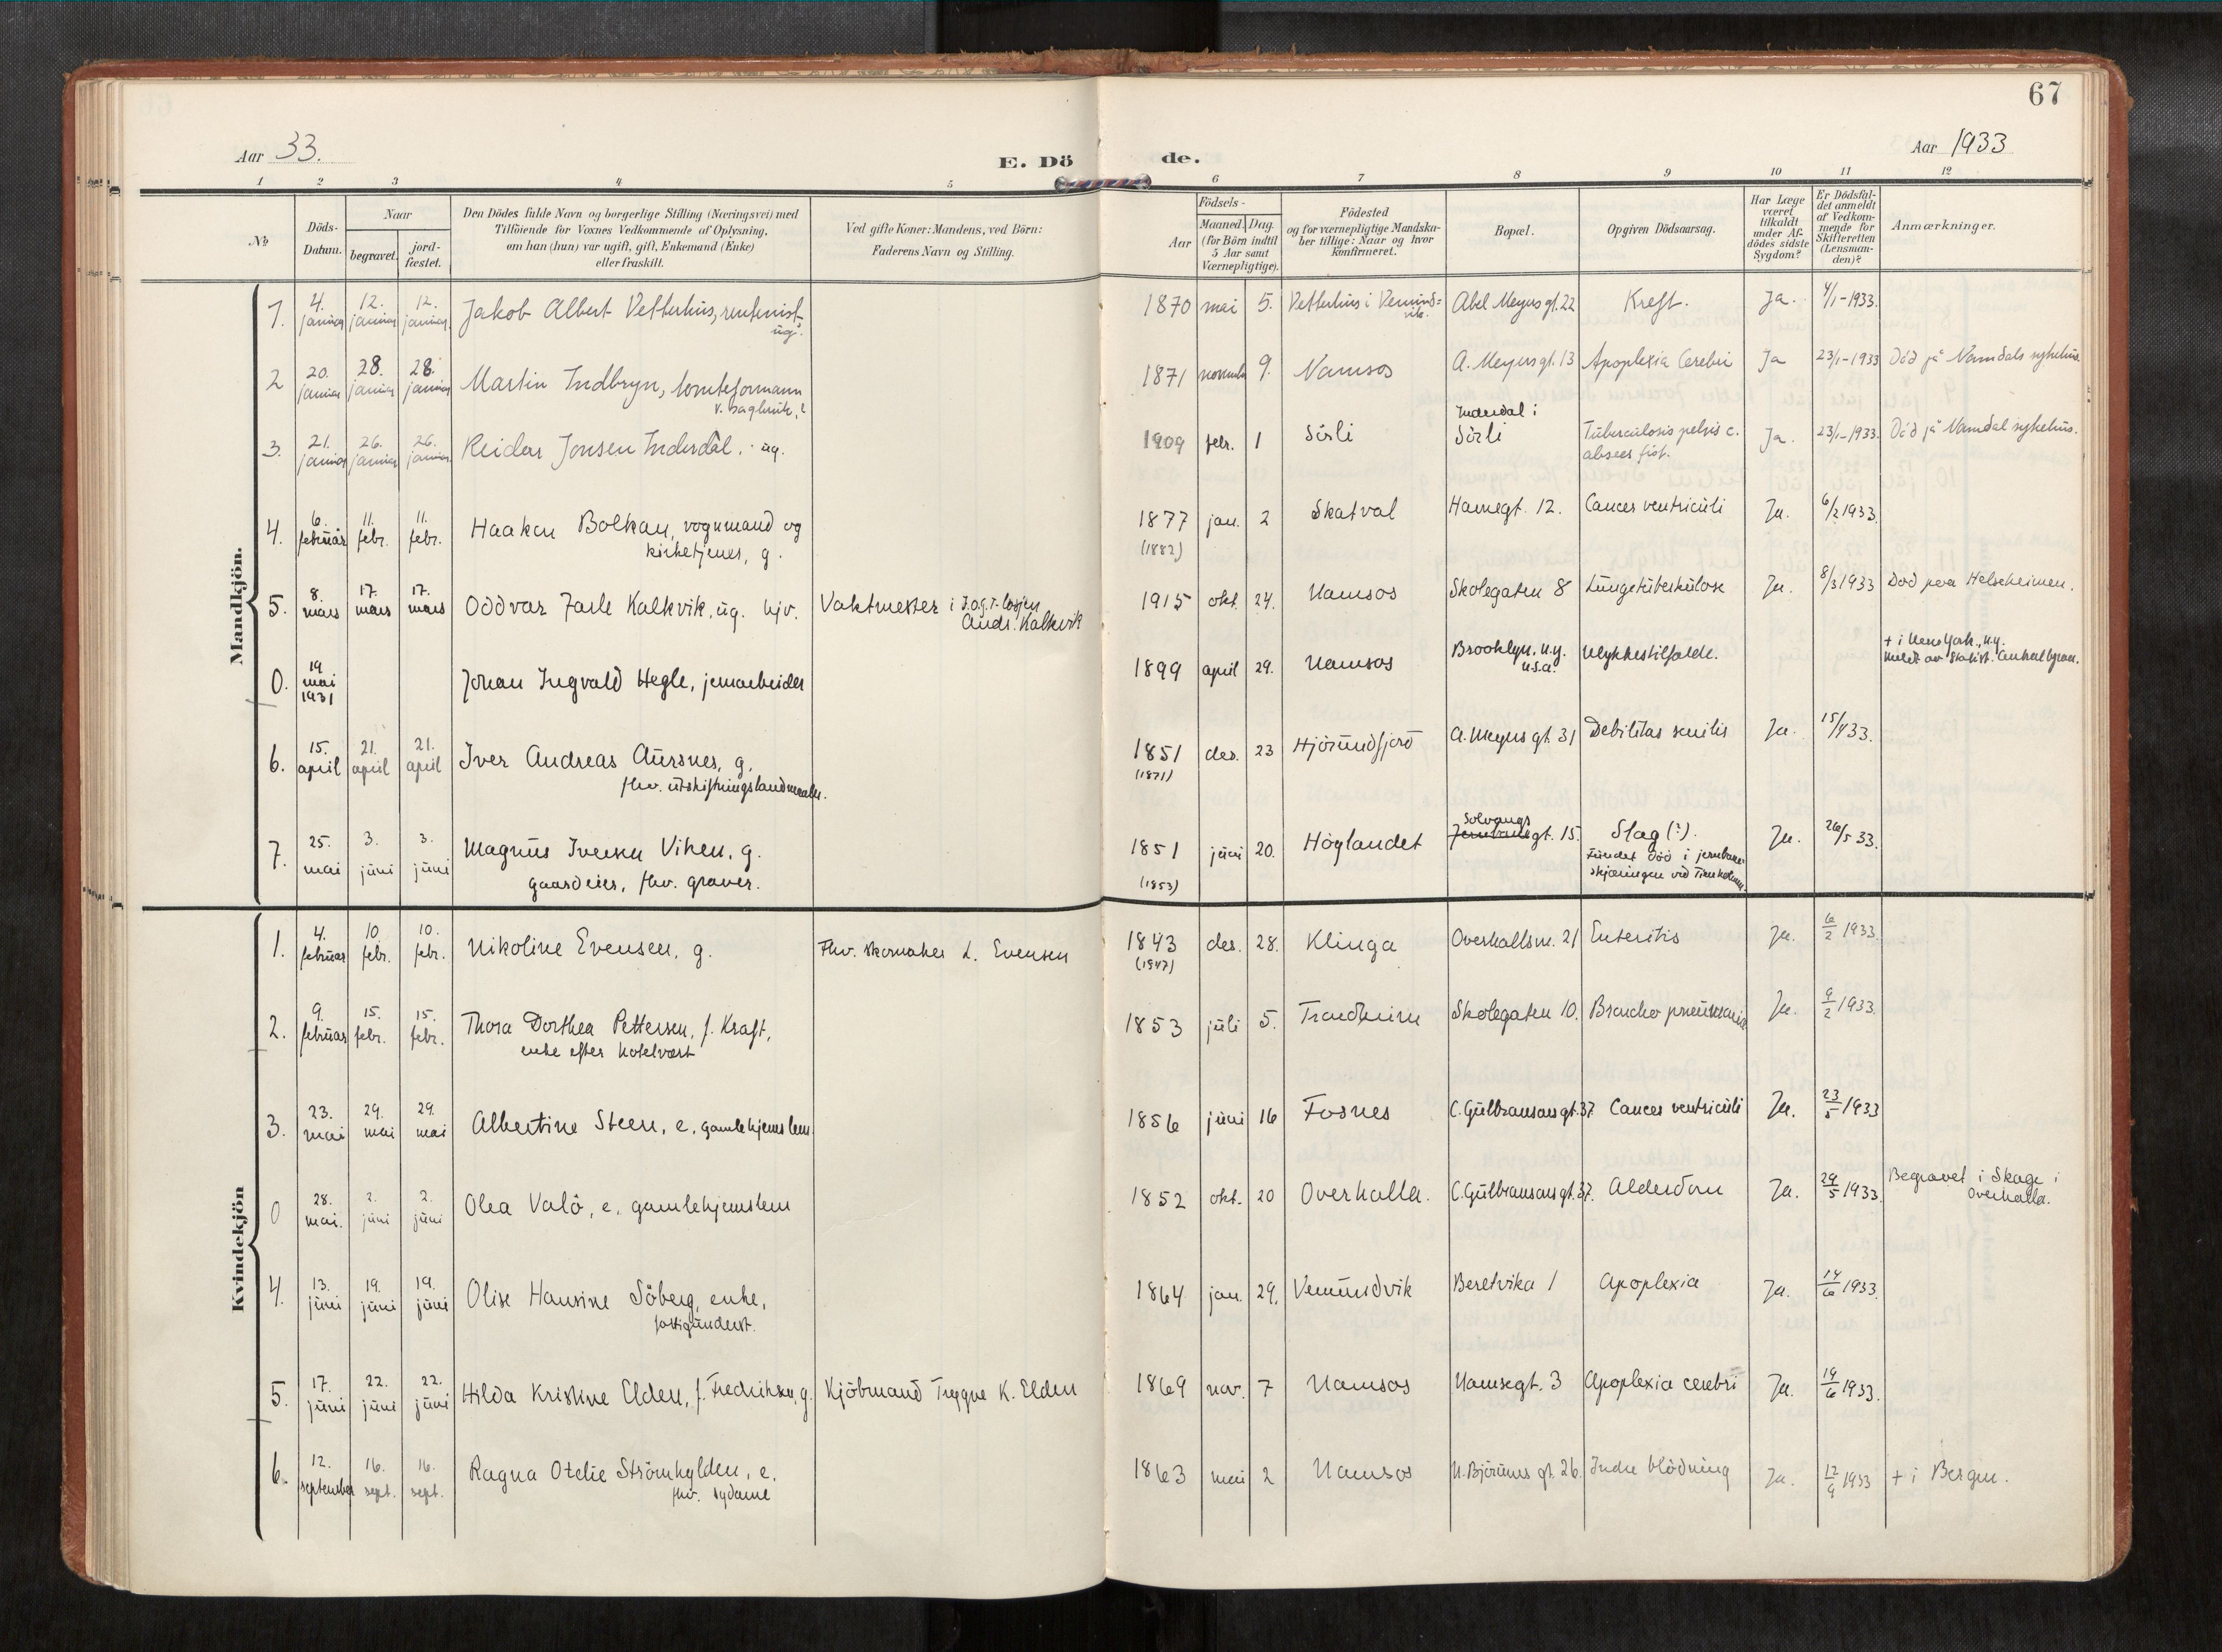 67
Aar 33.
E. Dö de.
Aar 1933
1 2 3 4 5 6 7 8 9 10 11 12
№
Döds-
Datum.
Naar
begravet.
jord-
fæstet.
Den Dödes fulde Navn og borgerlige Stilling (Næringsvei) med
Tilföiende for Voxnes Vedkommende af Oplysning,
om han (hun) var ugift, gift, Enkemand (Enke)
eller fraskilt.
Ved gifte Koner: Mandens, ved Börn:
Faderens Navn og Stilling.
Födsels-
Aar
Maaned. Dag.
(for Börn indtil
5 Aar samt
Værnepligtige).
Födested
og for værnepligtige Mandska-
ber tillige: Naar og hvor
konfirmeret.
Bopæl.
Opgiven Dödsaarsag.
Har Læge
været
tilkaldt
under Af-
dödes sidste
Sygdom?
Er Dödsfal-
det anmeldt
af Vedkom-
mende for
Skifteretten
(Lensman-
den)?
Anmærkninger.
Mandkjön.
1. 4. januar 12. januar 12. januar Jakob Albert Vetterhus, rentenist, 1870 mai 5. Vetterhus i Vemund= Abel Meyersgt. 22 Kreft. Ja. 4/1-1933.
ug. vik.
2 20. januar 28. januar 28. januar Martin Indbryn, tomteformann 1871 november 9. Namsos A. Meyersgt. 13 Apoplexia Cerebri Ja 23/1-1933 Död på Namdals sykehus.
v. sagbruk,
3. 21. januar 26. januar 26. januar Reidar Jonsen Inderdal. ug. 1909 febr. 1 Sörli Inderdal i
Sörli Tuberculosis pelvis c.
absces fist. Ja. 23/1-1933. Död på Namdal sykehus.
4. 6. februar 11. febr. 11. febr. Haakon Bolkan, vognmand og 1877 jan. 2 Skatval Havnegt. 12. Cancer ventriculi Ja. 6/2 1933.
kirketjener, g. (1882)
5. 8. mars 17. mars 17. mars Oddvar Jarle Kalkvik. ug. hjv. Vaktmester i I.O.G.T. losjen
Andr. Kalkvik 1915 okt. 24. Namsos Skolegaten 8 Lungetuberkulose Ja. 8/3 1933 Död paa Helseheimen.
0. 19 mai 1931 Johan Ingvald Hegle, jernarbeider 1899 april 29. Namsos Brooklyn. N.Y.
U.S.A. Ulykkestilfælde. + i New York, N.Y.
meldt av Statist. Centralbyraa.
6. 15. april 21. april 21. april Iver Andreas Aursnes, g. 1851 des. 23 Hjörundfjord A. Meyers gt. 31 Debilitas senilis Ja. 15/4 33.
fhv. utskiftningslandmaaler. (1871)
7. 25. mai 3. juni 3. juni Magnus Iversen Viken. g. 1851 juni 20. Höglandet Solvangs
gt. 15. Slag (?).
gaardeier, fhv. graver. (1853) Fundet död i jernbane-
skjæringen ved Ja. 26/5 33.
Kvindekjön
1. 4. februar 10 febr. 10. febr. Nikoline Evensen, g. Fhv. skomaker L. Evensen 1843 des. 28. Klinga Overhallsv. 21 Enteritis Ja. 6/2 1933.
(1847)
2. 9. februar 15. febr. 15. febr. Thora Dorthea Pettersen, f. Kraft, 1853 juli 5. Trondheim Skolegaten 10. Broncho pneumonia Ja. 9/2 1933.
enke efter hotelvært
3. 23. mai 29. mai 29. mai Albertine Steen, e. gamlehjemslem. 1856 juni 16 Fosnes C. Gulbransons gt. 37 Cancer ventriculi Ja. 23/5 1933
0 28. mai. 2. juni 2. juni Olea Valö, e. gamlehjemslem 1852 okt. 20 Overhalla. C. Gulbransons gt. 37. Alderdom Ja. 29/5 1933. Begravet i Skage i
Overhalla.
4. 13. juni 19. juni 19. juni Olise Hansine Söberg, enke, 1864 jan. 29. Vemundvik Beretvika 1 Apoplexia Ja. 14/6 1933.
fattigunderst.
5. 17. juni 22. juni 22. juni Hilda Kristine Elden, f. Fredriksen, g. Kjöbmand Trygve K. Elden 1869 nov. 7 Namsos Namsegt. 3 Apoplexia cerebri Ja. 19/6 1933.
6. 12. september 16. sept. 16. sept. Ragna Otelie Strömhylden, e. 1863 mai 2 Namsos N. Björums gt. 26. Indre blödning Ja. 12/9 1933 + i Bergen.
fhv. sydame